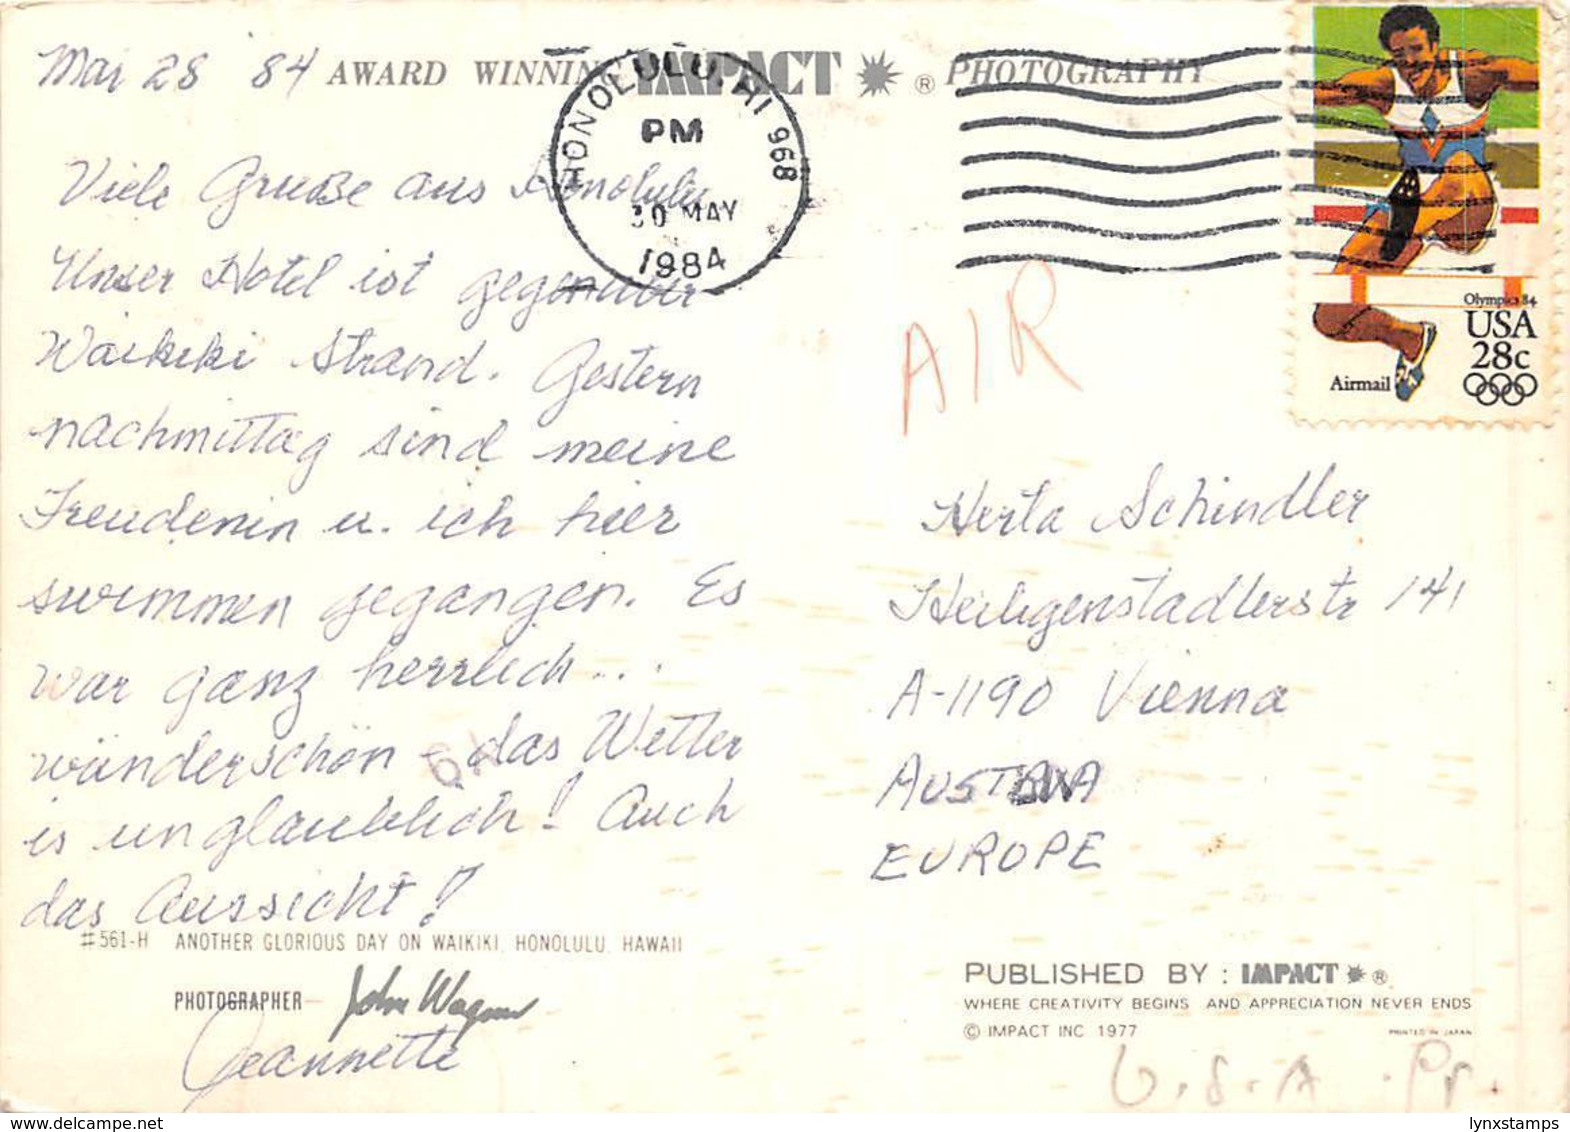 Mai 28 '84
AWARD WINNING IMPACT ® PHOTOGRAPHY
HONOLULU, HI 968
PM
30 MAY
1984
Olympics 84
USA
28c
Airmail
AIR
Viele Grüße aus Honolulu
Unser Hotel ist gegenüber
Waikiki Strand. Gestern
nachmittag sind meine
Freudenin u. ich hier
swimmen gegangen. Es
war ganz herrlich..
wünderschön - das Wetter
is unglaublich! Auch
das Aussicht!
Jeannette
Herta Schindler
Heiligenstadlerstr 141
A-1190 Vienna
AUSTRIA
EUROPE
#561-H ANOTHER GLORIOUS DAY ON WAIKIKI, HONOLULU, HAWAII
PHOTOGRAPHER John Wagner
PUBLISHED BY : IMPACT ®
WHERE CREATIVITY BEGINS AND APPRECIATION NEVER ENDS
© IMPACT INC 1977
PRINTED IN JAPAN
U.S.A. Pr.
lynxstamps